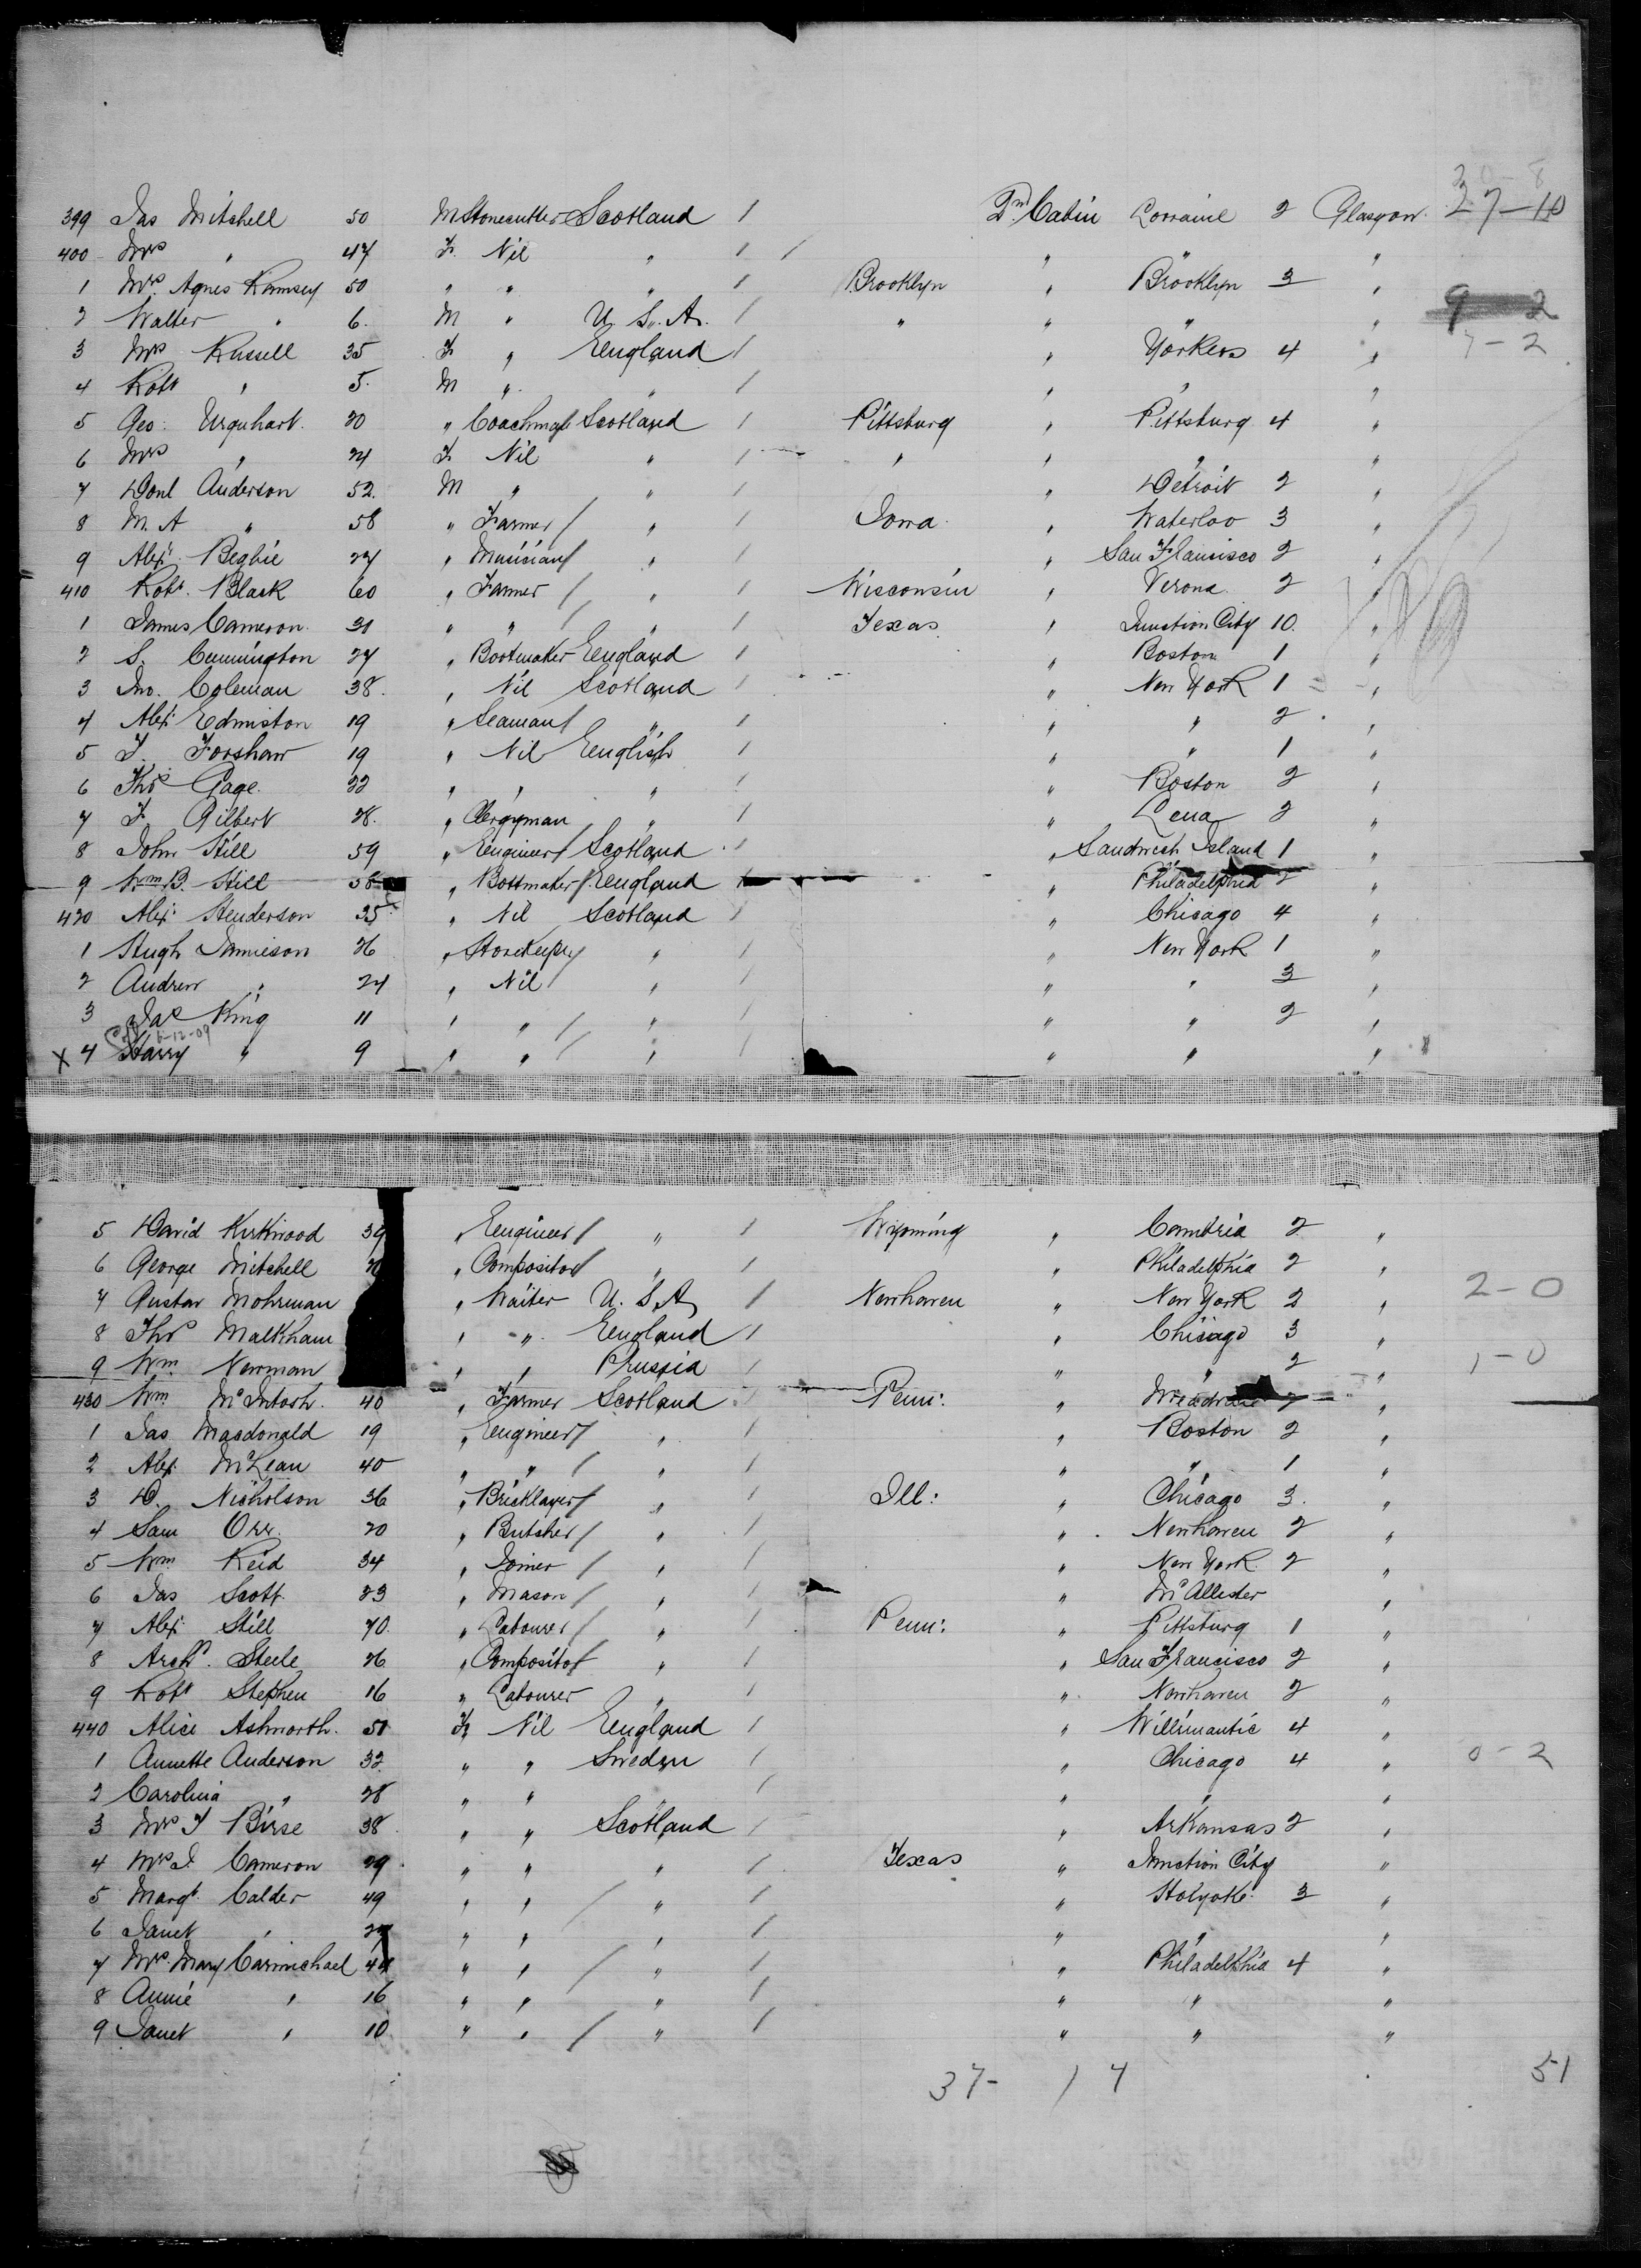 30-8
399 Jas Mitchell 50 M Stonecutter Scotland 1 2nd Cabin Lorraine 2 Glasgow 27-10
400 Mrs " 47 F. Nil " 1 1 " " "
1 Mrs. Agnes Ramsey 50 " " " 1 Brooklyn " Brooklyn 3 "
2 Walter " 6. M " U. S. A. 1 " " " " 9 2
3 Mrs Russell 35 F " England 1 " Yonkers 4 " 7-2
4 Robt " 5. M " " 1 " " "
5 Geo: Urquhart. 20 " Coachman Scotland 1 Pittsburg " Pittsburg 4 "
6 Mrs " 24 F Nil " 1 " " " "
7 Donl Anderson 52. M " " 1 " Detroit 2 "
8 M. A " 58 " Farmer / " 1 Iowa " Waterloo 3 "
9 Alexr. Begbie 27 " Musician / " 1 " San Francisco 2 "
410 Robt. Black 60 " Farmer / " 1 Wisconsin " Verona 2 "
1 James Cameron 31 " " / " 1 Texas " Junction City 10. "
2 S. Cunnington 27 " Bootmaker England 1 " Boston 1 "
3 Jno. Coleman 38. " Nil Scotland 1 " New York 1 "
4 Alex: Edmiston 19 " Seaman / " 1 " " 2 "
5 J. Forshaw 19 " Nil English 1 " " 1 "
6 Thos Gage. 22 " " " 1 " Boston 2 "
7 F. Gilbert 28. " Clergyman " 1 " Lena 2 "
8 John Hill 59 " Engineer / Scotland 1 " Sandwich Island 1 "
9 Wm B. Hill 58 " Bottmaker / England 1 " Philadelphia 2 "
420 Alex: Henderson 35 " Nil Scotland 1 " Chicago 4 "
1 Hugh Jamieson 26 " Storekeeper / " 1 " New York 1 "
2 Andrew " 24 " Nil " 1 " " 3 "
3 Jas King 11 " " / " 1 " " 2 "
6-12-09
X 4 Harry " 9 " " / " 1 " " "
5 David Kirkwood 39 " Engineer / " 1 Wyoming " Cambria 2 "
6 George Mitchell " Compositor / " 1 " Philadelphia 2 "
7 Gustav Mohrman " Waiter U. S. A 1 Newhaven " New York 2 " 2-0
8 Thos Malkham " " England 1 " Chicago 3 "
9 Wm. Newman " " Prussia 1 " " 2 " 1-0
430 Wm. McIntosh. 40 " Farmer Scotland 1 Penn: " 2 "
1 Jas Macdonald 19 " Engineer / " 1 " Boston 2 "
2 Alex. McLean 40 " " / " 1 " " 1 "
3 D. Nicholson 36 " Bricklayer / " 1 Ill: " Chicago 3. "
4 Sam Orr. 20 " Butcher / " 1 " Newhaven 2 "
5 Wm. Reid 34 " Joiner / " 1 " New York 2 "
6 Jas Scott 23 " Mason / " 1 " McAllister "
7 Alex: Still 70. " Labourer / " 1 Penn: " Pittsburg 1 "
8 Archd. Steele 26 " Compositor / " 1 " San Francisco 2 "
9 Robt Stephen 16 " Labourer " 1 " Newhaven 2 "
440 Alice Ashworth. 51 F Nil England 1 " Willimantic 4 "
1 Annette Anderson 32 " " Sweden 1 " Chicago 4 " 0-2
2 Carolina " 28 " " " 1 " " "
3 Mrs J Birse 38 " " Scotland 1 " Arkansas 2 "
4 Mrs J. Cameron 29 " " " 1 Texas " Junction City "
5 Margt. Calder 49 " " / " 1 " Holyoke 3 "
6 Janet " " " " 1 " " "
7 Mrs. Mary Carmichael 44 " " / " 1 " Philadelphia 4 "
8 Annie " 16 " " / " 1 " " "
9 Janet " 10 " " / " 1 " " "
37- 14 51